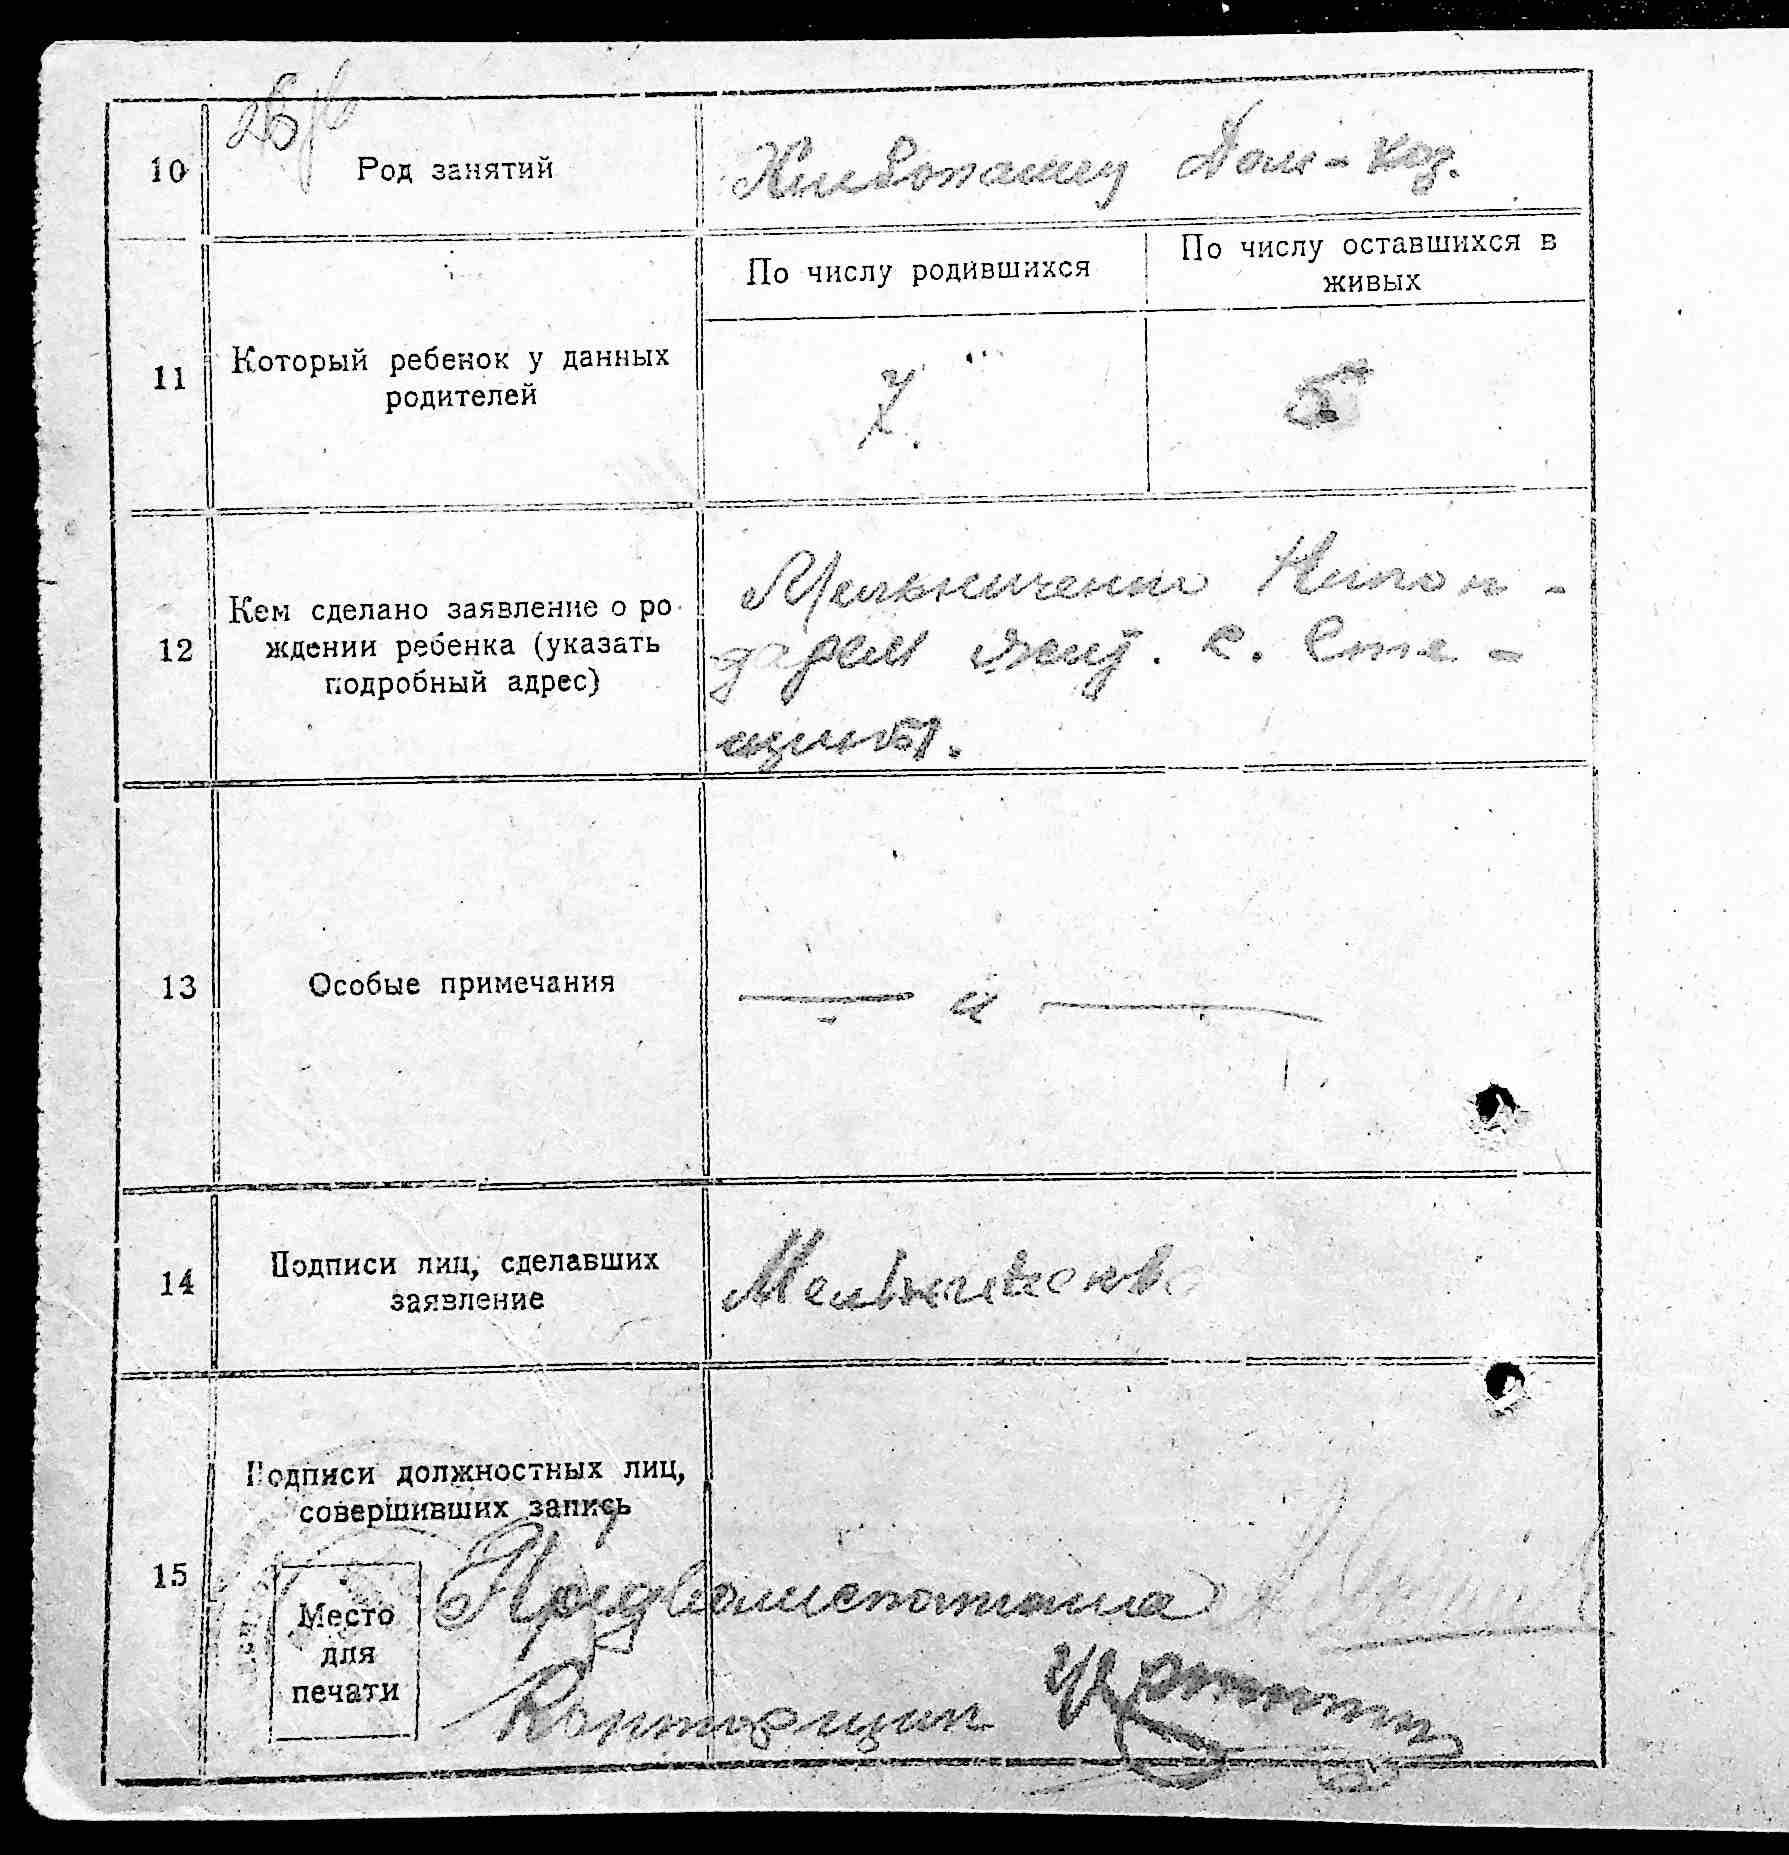 10
Род занятий
Хлебопашец Дом-хоз.
11
Который ребенок у данных
родителей
По числу родившихся
По числу оставшихся в
живых
7.
5
12
Кем сделано заявление о ро
ждении ребенка (указать
подробный адрес)
Мельниченко Никон-
жит. с. Сте-
цины.
13
Особые примечания
14
Подписи лиц, сделавших
заявление
Мельниченко
15
Подписи должностных лиц,
совершивших запись
Место
для
печати
Предволисполкома
Конторщик